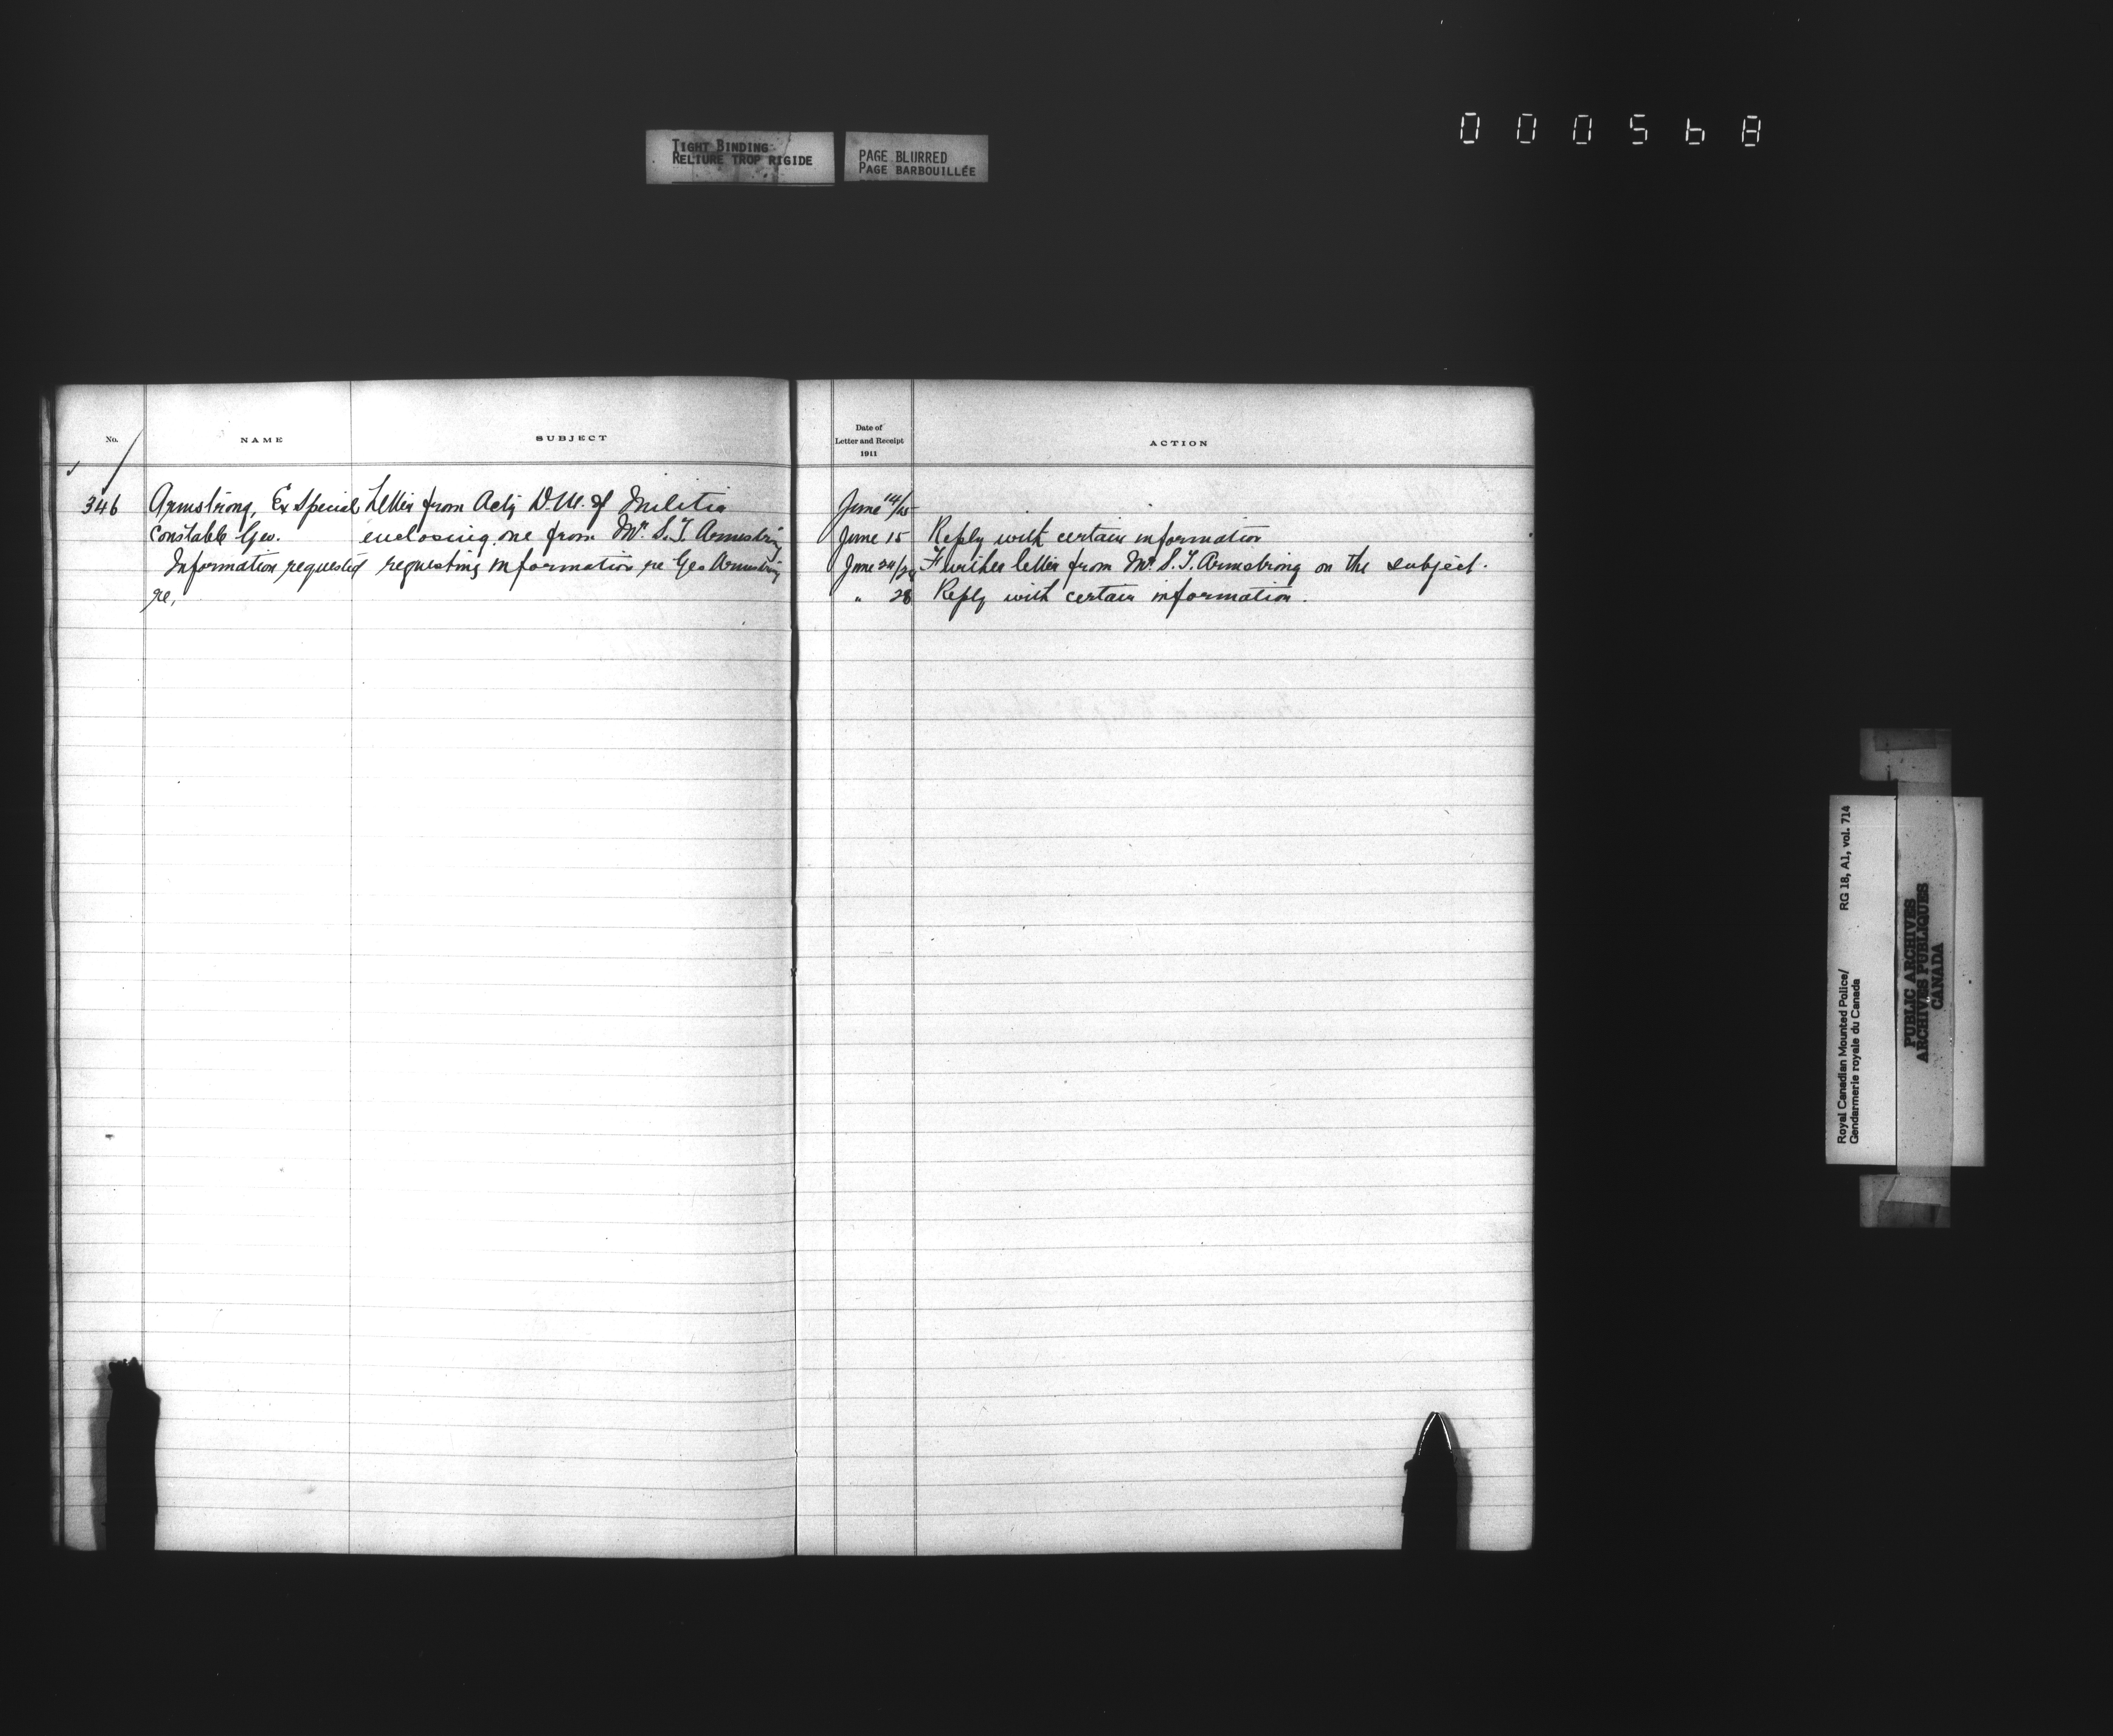 000568
TIGHT BINDING
RELIURE TROP RIGIDE
PAGE BLURRED
PAGE BARBOUILLÉE
No.
NAME
SUBJECT
Date of
Letter and Receipt
1911
ACTION
346 Armstrong, Ex Special Letter from Actg D.M. of Militia June 14/15
Constable Geo. enclosing one from Mr. S.T. Armstrong June 15 Reply with certain information
Information requested requesting information re Geo Armstrong June 24/ Further letter from Mr. S.T. Armstrong on the subject.
re, " 28 Reply with certain information.
Royal Canadian Mounted Police/ RG 18, A1, vol. 714
Gendarmerie royale du Canada
PUBLIC ARCHIVES
ARCHIVES PUBLIQUES
CANADA